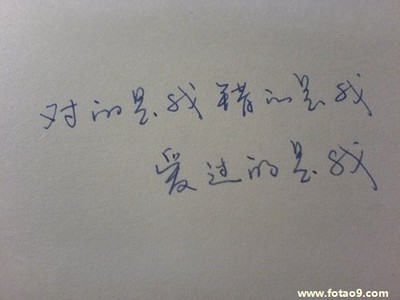 对的是我错的是我
爱过的是我
www.fotao9.com